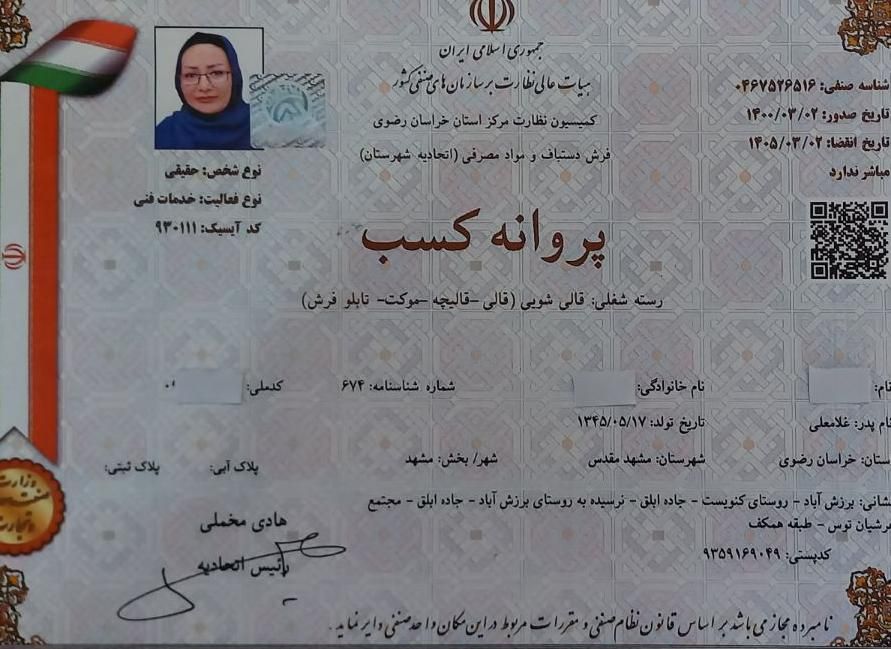 جمهوری اسلامی ایران
هیات عالی نظارت بر سازمان های صنفی کشور
کمیسیون نظارت مرکز استان خراسان رضوی
فرش دستباف و مواد مصرفی (اتحادیه شهرستان)
شناسه صنفی: ۰۴۶۷۵۲۶۵۱۶
تاریخ صدور: ۱۴۰۰/۰۳/۰۲
تاریخ انقضا: ۱۴۰۵/۰۳/۰۲
مباشر ندارد
نوع شخص: حقیقی
نوع فعالیت: خدمات فنی
کد آیسیک: ۹۳۰۱۱۱
پروانه کسب
رسته شغلی: قالی شویی (قالی -قالیچه -موکت- تابلو فرش)
نام: نام خانوادگی: شماره شناسنامه: ۶۷۴ کدملی:
نام پدر: غلامعلی تاریخ تولد: ۱۳۴۵/۰۵/۱۷
ستان: خراسان رضوی شهرستان: مشهد مقدس شهر/ بخش: مشهد پلاک آبی: پلاک ثبتی:
شانی: برزش آباد - روستای کنویست - جاده ابلق - نرسیده به روستای برزش آباد - جاده ابلق - مجتمع
رشیان توس - طبقه همکف
کدپستی: ۹۳۵۹۱۶۹۰۴۹
هادی مخملی
رئیس اتحادیه
نامبرده مجاز می باشد بر اساس قانون نظام صنفی و مقررات مربوط در این مکان واحد صنفی دایر نماید.
وزارت
صنعت
و تجارت